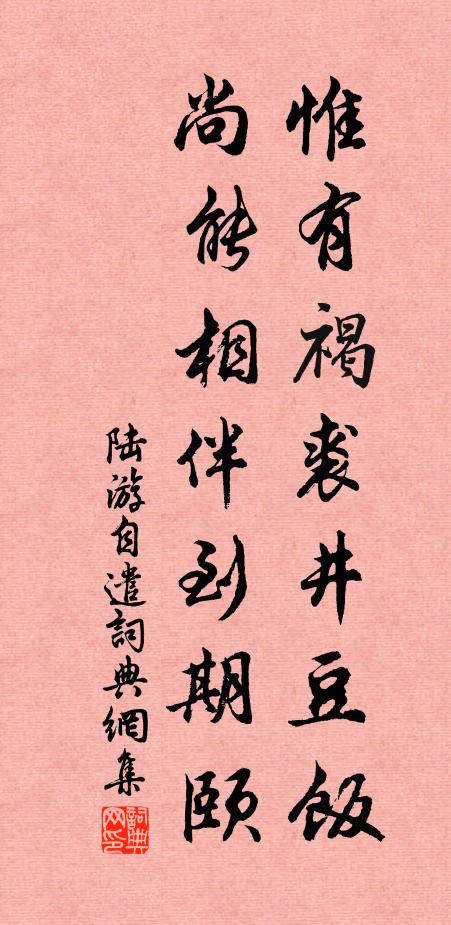 惟有褐裘井豆飯
尚能相伴到期頤
陆游自遣詞典網集
詞典網印